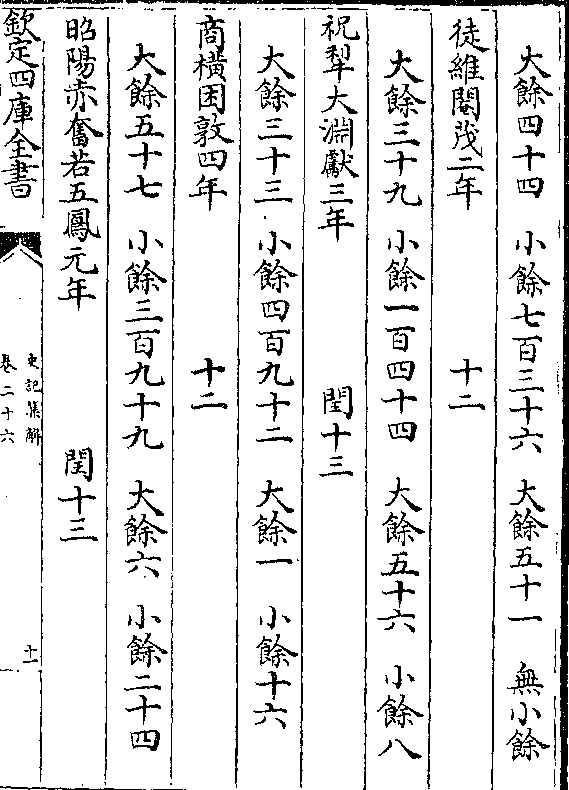 大餘四十四　小餘七百三十六　大餘五十一　無小餘
徒維閹茂二年　十二
大餘三十九　小餘一百四十四　大餘五十六　小餘八
祝犂大淵獻三年　閏十三
大餘三十三　小餘四百九十二　大餘一　小餘十六
商橫困敦四年　十二
大餘五十七　小餘三百九十九　大餘六　小餘二十四
昭陽赤奮若五鳳元年　閏十三
欽定四庫全書
史記集解
卷二十六
十一